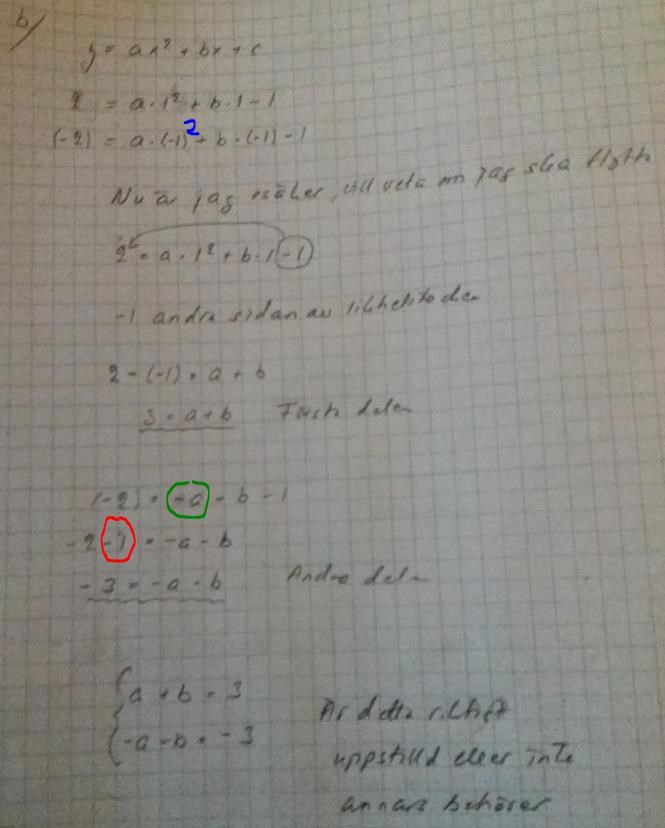 b)
y = ax² + bx + c
2 = a·1² + b·1 - 1
(-2) = a·(-1)² + b·(-1) - 1
Nu är jag osäker, vill veta om jag ska flytta
2 = a·1² + b·1 - 1
-1 andra sidan av likhetstecken
2 - (-1) = a + b
3 = a + b Första delen
(-2) = -a - b - 1
-2 - 1 = -a - b
-3 = -a - b Andra delen
a + b = 3
-a - b = -3
Är detta riktigt
uppställd eller inte
annars behöver